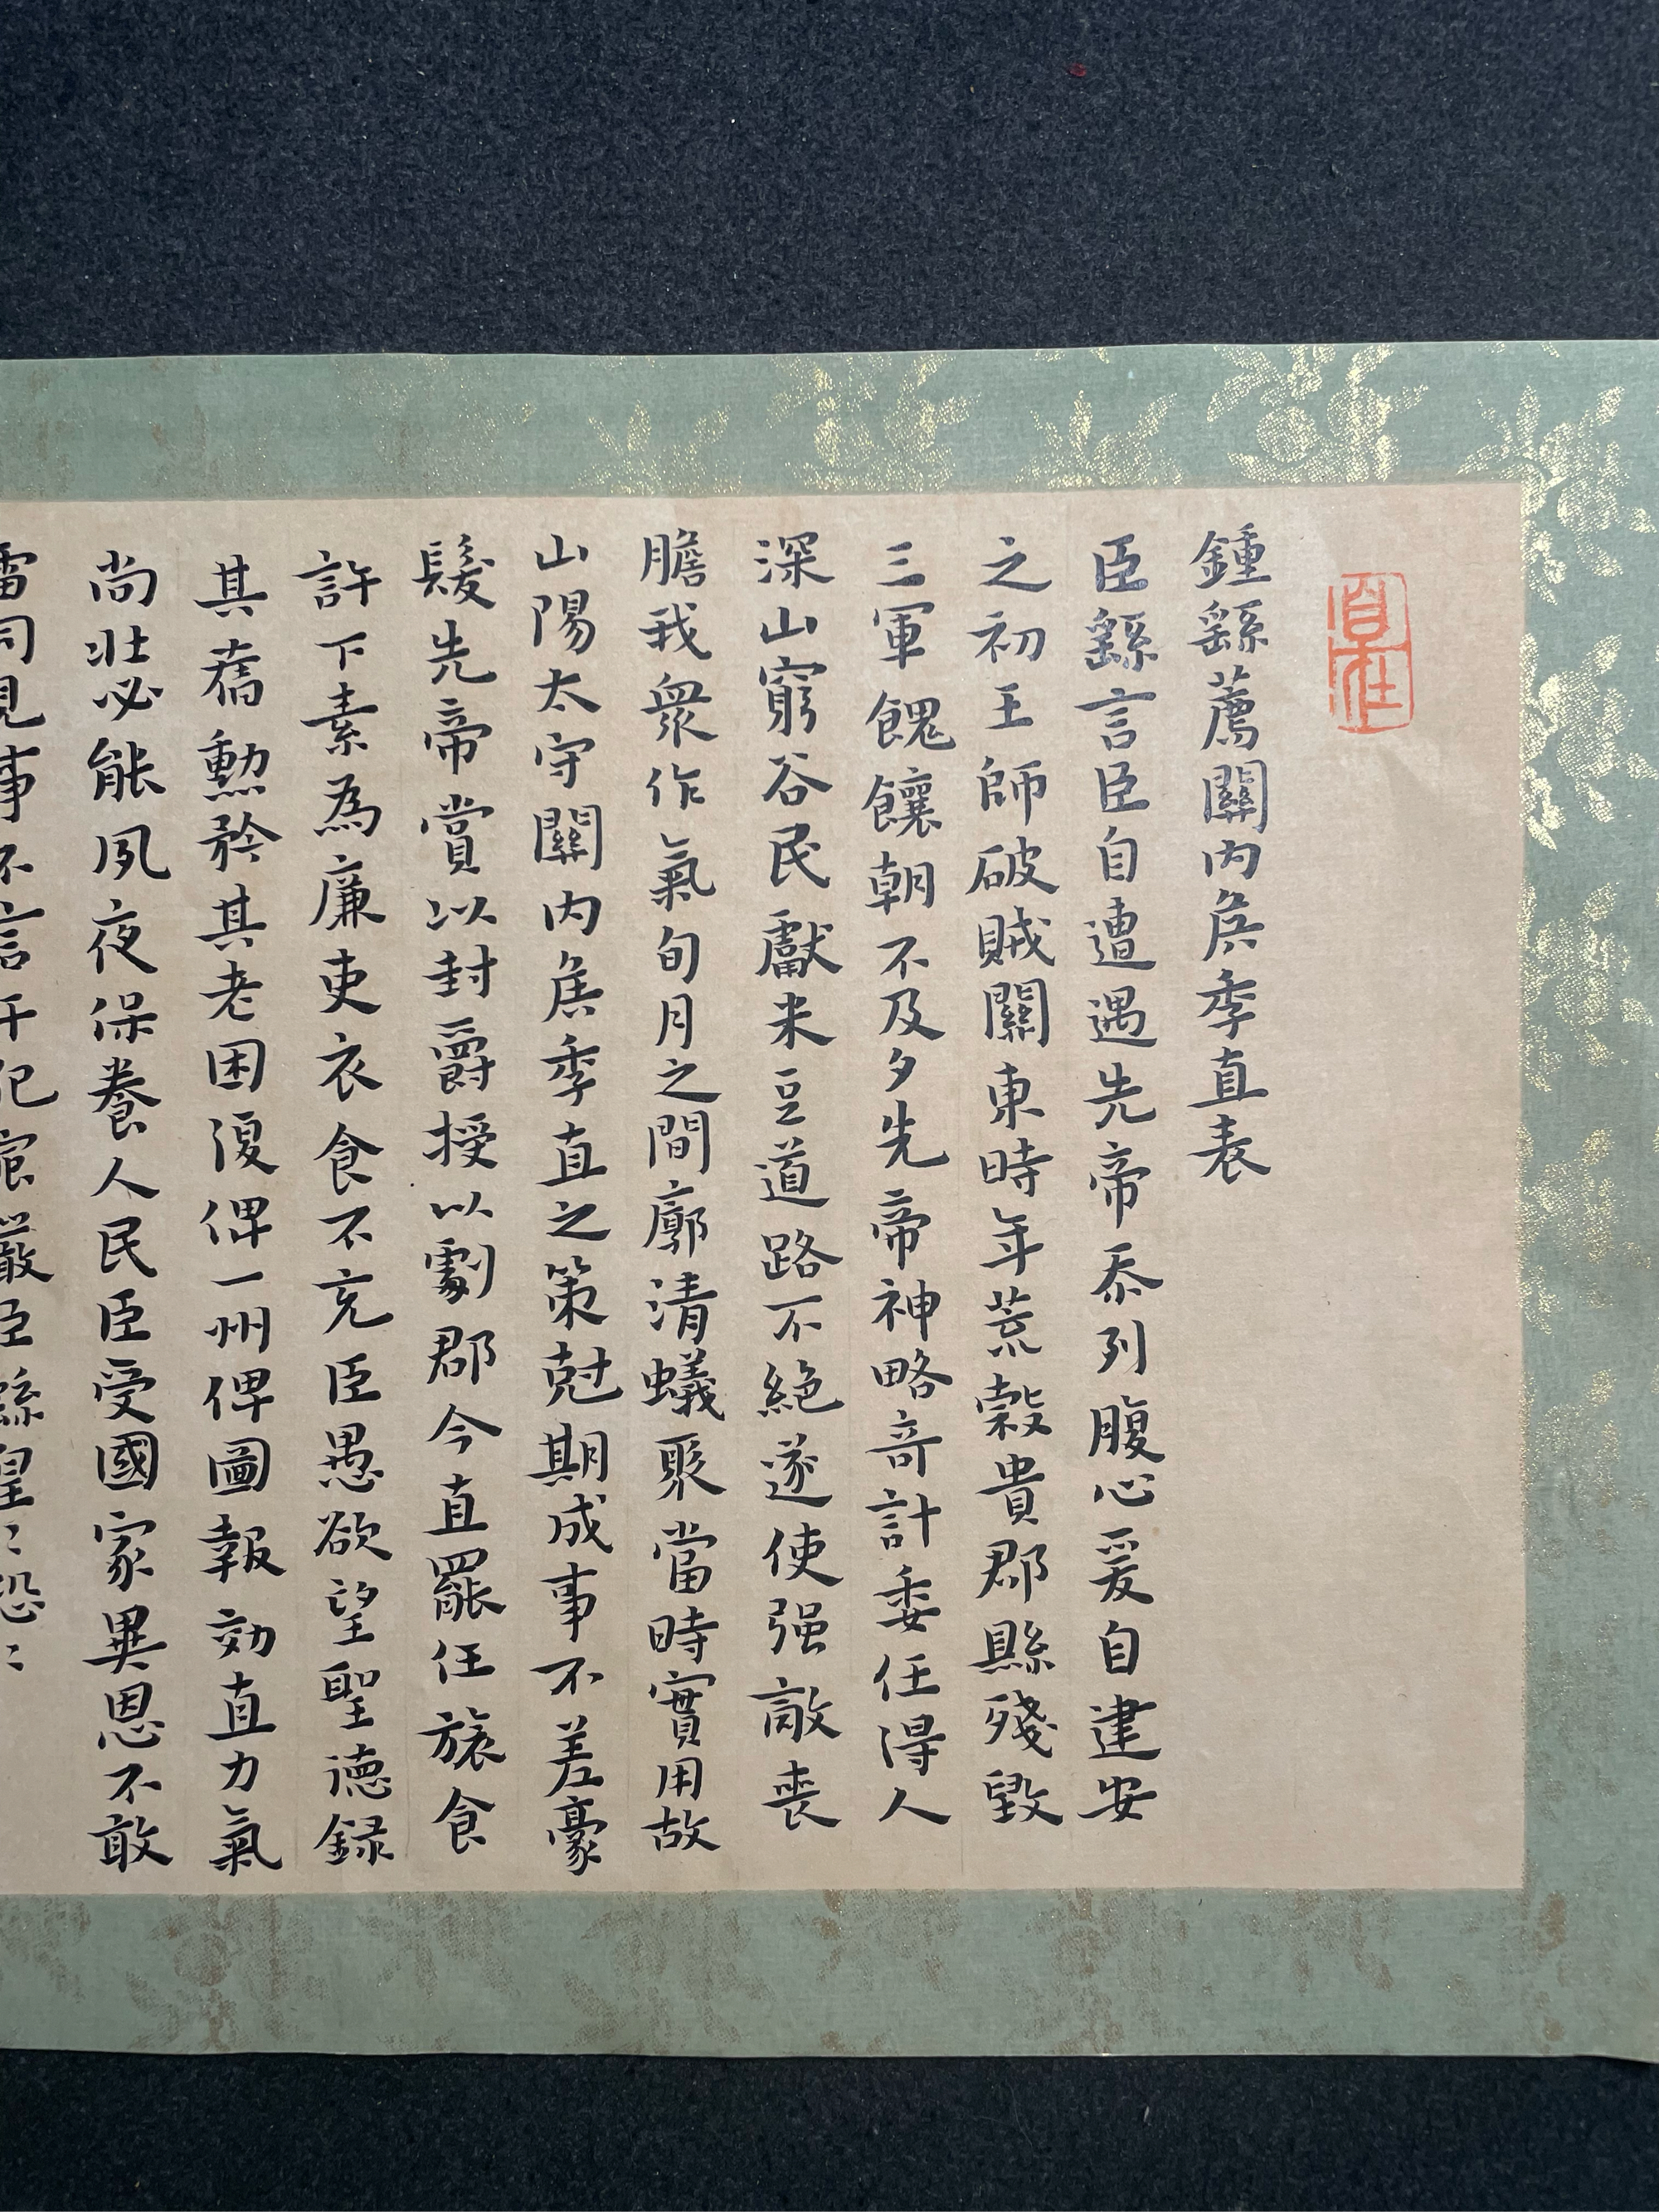 鍾繇薦關内侯季直表
臣繇言臣自遭遇先帝忝列腹心爰自建安
之初王師破賊關東時年荒穀貴郡縣殘毀
三軍餽饟朝不及夕先帝神略奇計委任得人
深山窮谷民獻米豆道路不絕遂使强敵喪
膽我衆作氣旬月之間廓清蟻聚當時實用故
山陽太守關内侯季直之策尅期成事不差豪
髮先帝賞以封爵授以劇郡今直罷任旅食
許下素為廉吏衣食不充臣愚欲望聖德録
其舊勳矜其老困復俾一州俾圖報効直力氣
尚壯必能夙夜保養人民臣受國家異恩不敢
雷同見事不言干犯宸嚴臣繇皇〻恐〻